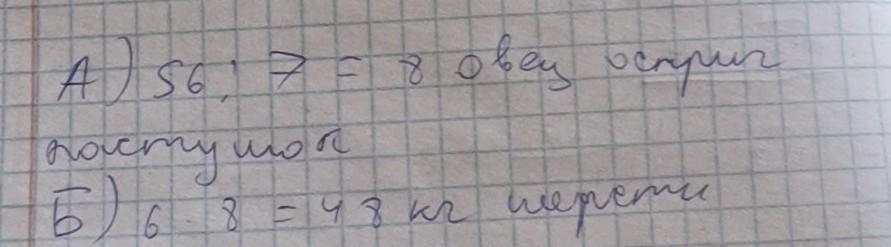 А) 56 : 7 = 8 овец остриг
пастушок
Б) 6 · 8 = 48 кг шерсти